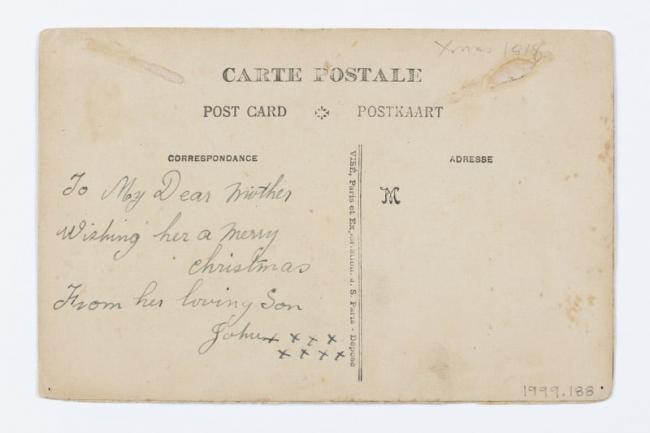 Xmas 1918
CARTE POSTALE
POST CARD POSTKAART
CORRESPONDANCE
ADRESSE
To My Dear Mother
Wishing her a merry
christmas
From her loving Son
John x x x x
x x x x
VISÉ, Paris et J. S. Paris - Déposé
M
1999.188